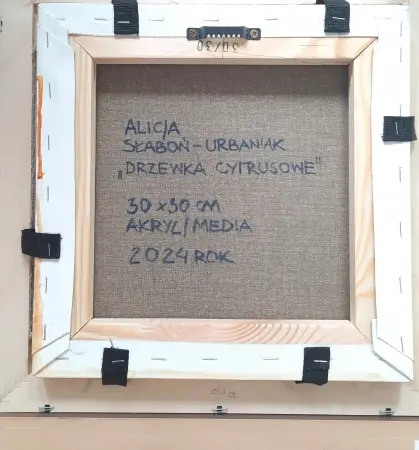 30/30
ALICJA
SŁABOŃ-URBANIAK
„DRZEWKA CYTRUSOWE"
30 x 30 CM
AKRYL/MEDIA
2024 ROK